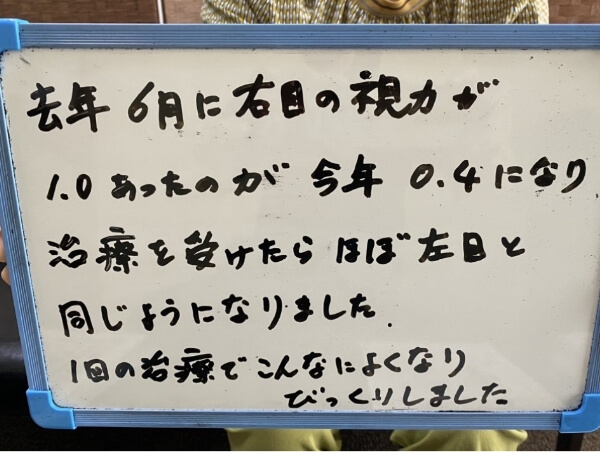 去年 6月に右目の視力が
1.0あったのが 今年 0.4になり
治療を受けたら ほぼ左目と
同じようになりました.
1回の治療でこんなによくなり
びっくりしました